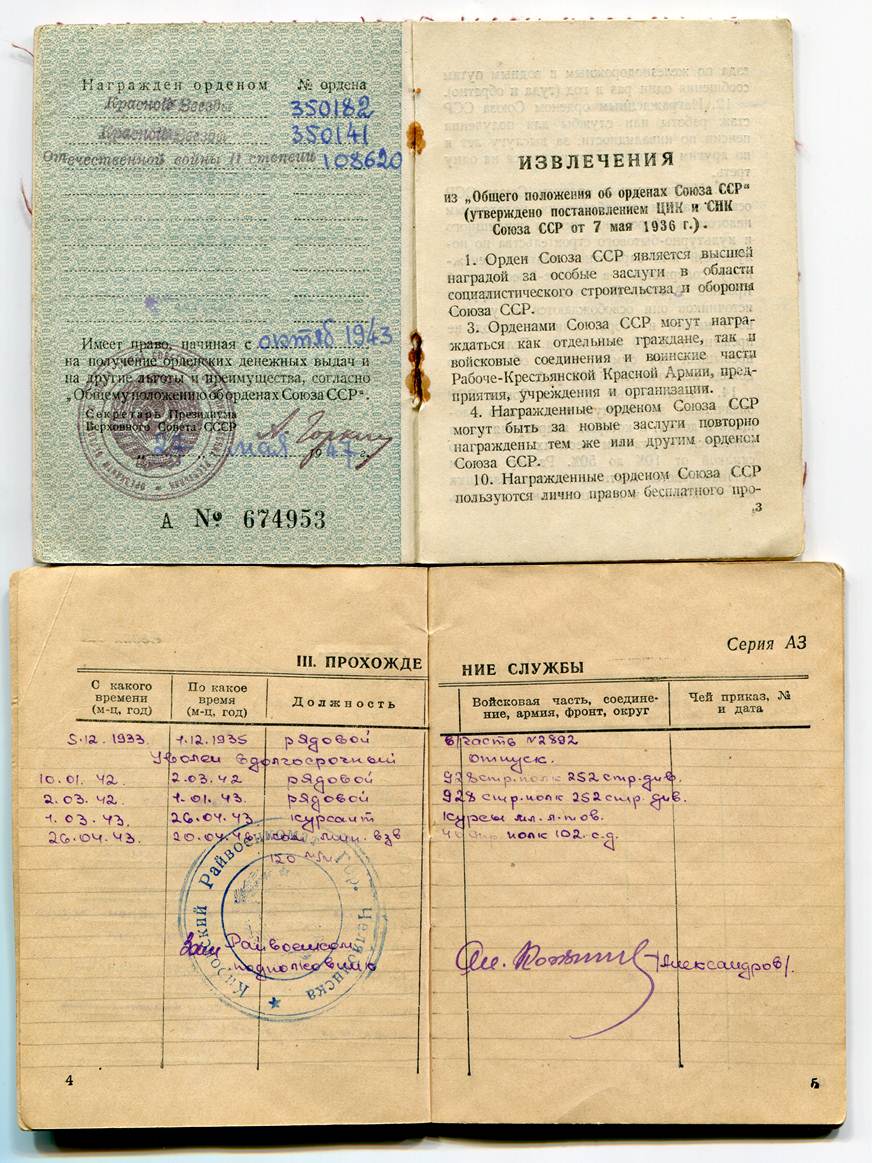 Награжден орденом № ордена
Красной Звезды 350182
Красной Звезды 350141
Отечественной войны II степени 108620
Имеет право, начиная с октяб 1943
на получение орденских денежных выдач и
на другие льготы и преимущества, согласно
„Общему положению об орденах Союза ССР“.
Секретарь Президиума
Верховного Совета СССР
А. Горкин
„27 мая 1947 г.
А № 674953
ИЗВЛЕЧЕНИЯ
из „Общего положения об орденах Союза ССР“
(утверждено постановлением ЦИК и СНК
Союза ССР от 7 мая 1936 г.).
1. Орден Союза ССР является высшей
наградой за особые заслуги в области
социалистического строительства и обороны
Союза ССР.
3. Орденами Союза ССР могут награ-
ждаться как отдельные граждане, так и
войсковые соединения и воинские части
Рабоче-Крестьянской Красной Армии, пред-
приятия, учреждения и организации.
4. Награжденные орденом Союза ССР
могут быть за новые заслуги повторно
награждены тем же или другим орденом
Союза ССР.
10. Награжденные орденом Союза ССР
пользуются лично правом бесплатного про-
3
Серия АЗ
III. ПРОХОЖДЕ НИЕ СЛУЖБЫ
С какого времени (м-ц, год) По какое время (м-ц, год) Должность Войсковая часть, соедине-ние, армия, фронт, округ Чей приказ, № и дата
5.12.1933. 1.12.1935 рядовой в/часть №2892
Уволен в долгосрочный отпуск.
10.01.42 2.03.42 рядовой 928 стр. полк 252 стр. див.
2.03.42 1.01.43. рядовой 928 стр. полк 252 стр. див.
1.03.43. 26.04.43 курсант курсы мл. л-тов.
26.04.43. 20.04. мин. взв полк 102 с.д.
Зам Райвоенком
подполковник /Александров/.
Кировский Райвоенкомат Гор. Челябинска
4
5